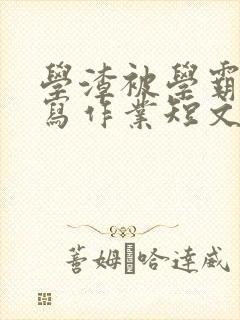 學渣被學霸
寫作業短文
蓍姆·哈達威